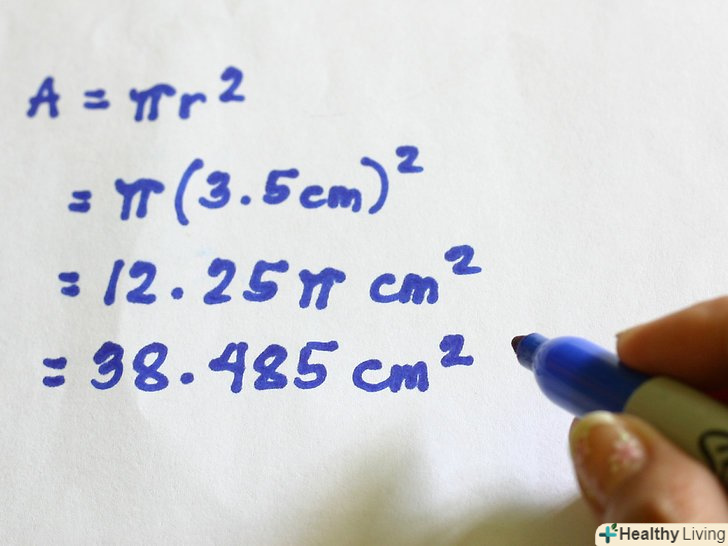 A = πr²
= π(3.5cm)²
= 12.25π cm²
= 38.485 cm²
Healthy Living